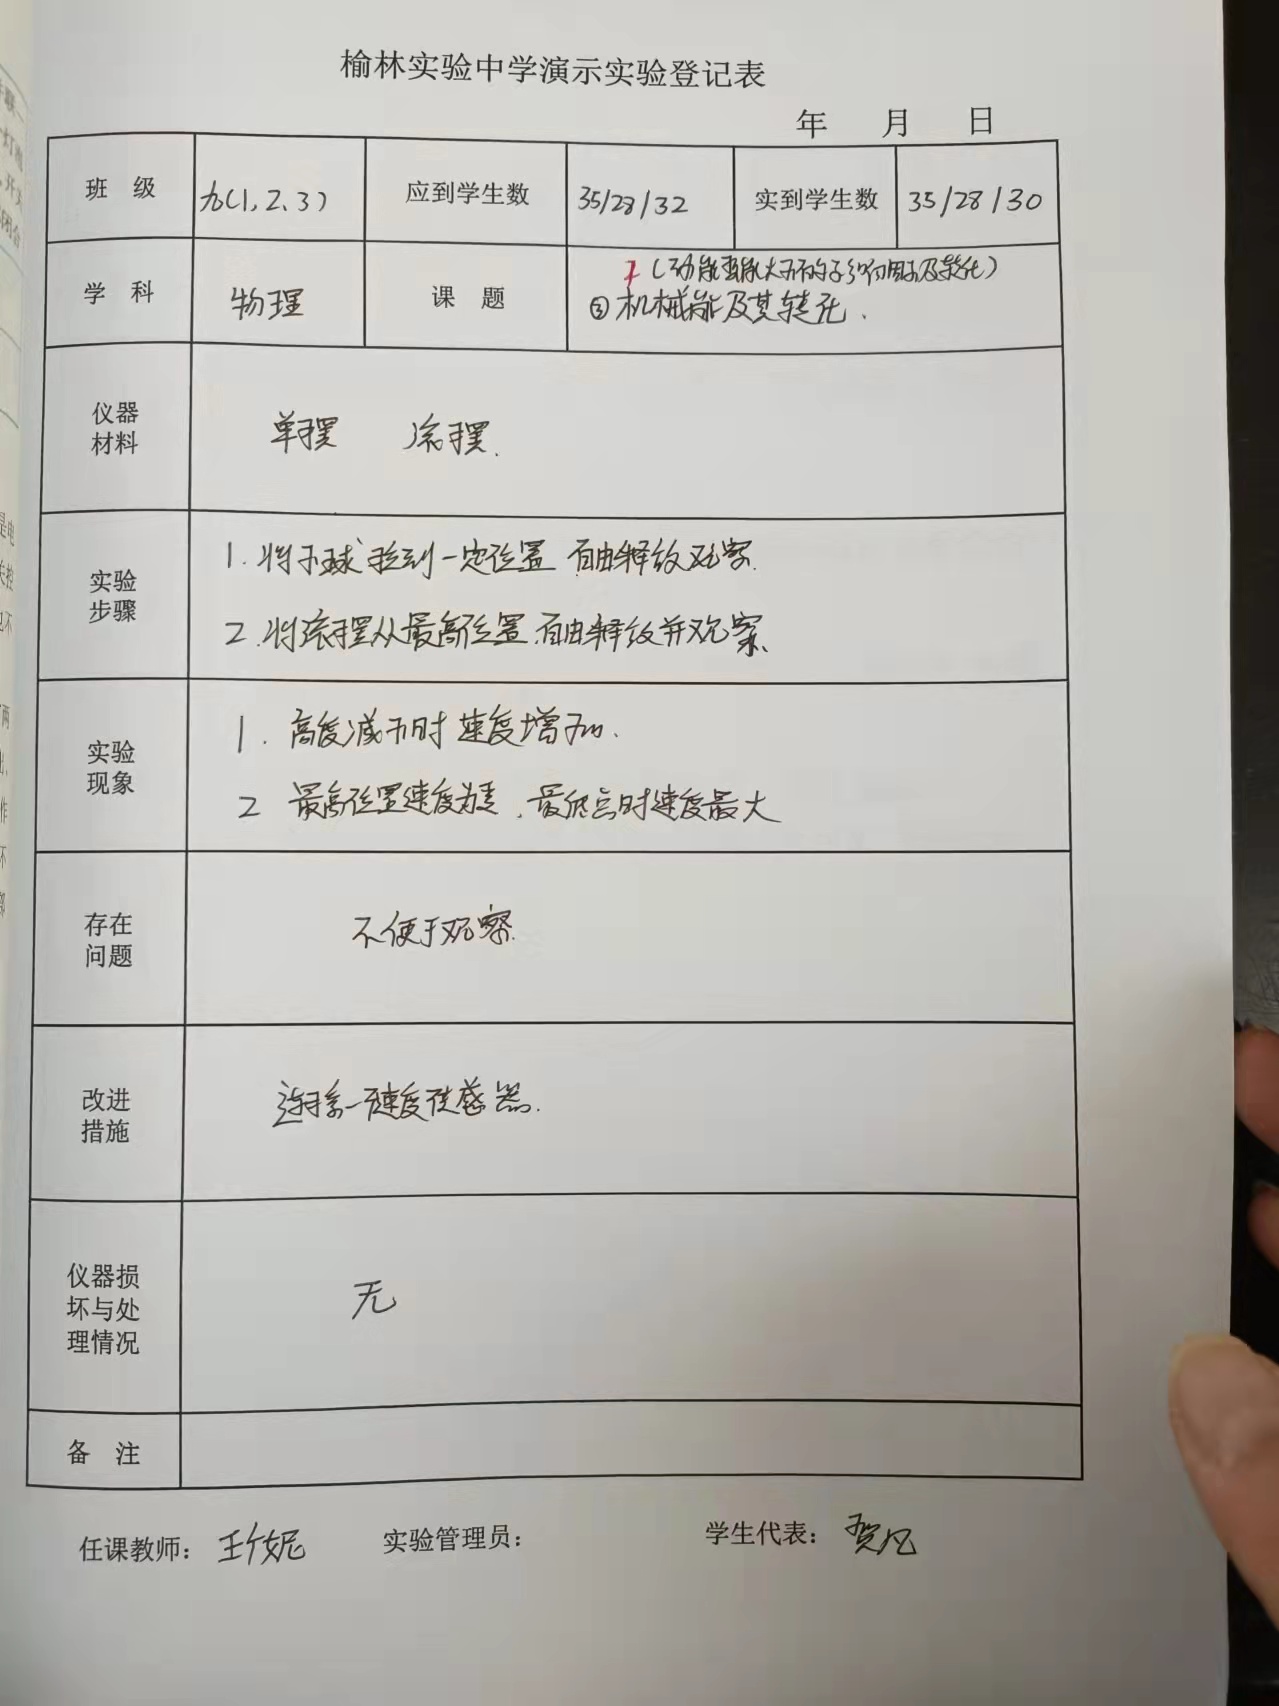 榆林实验中学演示实验登记表
年 月 日
班 级 九(1、2、3) 应到学生数 35/28/32 实到学生数 35/28/30
学 科 物理 课 题 (动能 及转化)
③机械能及其转化.
仪器材料 单摆 滚摆.
实验步骤 1.将小球拉到一定位置 自由释放观察.
2.将滚摆从最高位置自由释放并观察.
实验现象 1.高度减小时 速度增加.
2 最高位置速度为零,最低点时速度最大
存在问题 不便于观察.
改进措施 连接一速度传感器.
仪器损坏与处理情况 无
备 注
任课教师: 王 妮 实验管理员: 学生代表: 贺凡